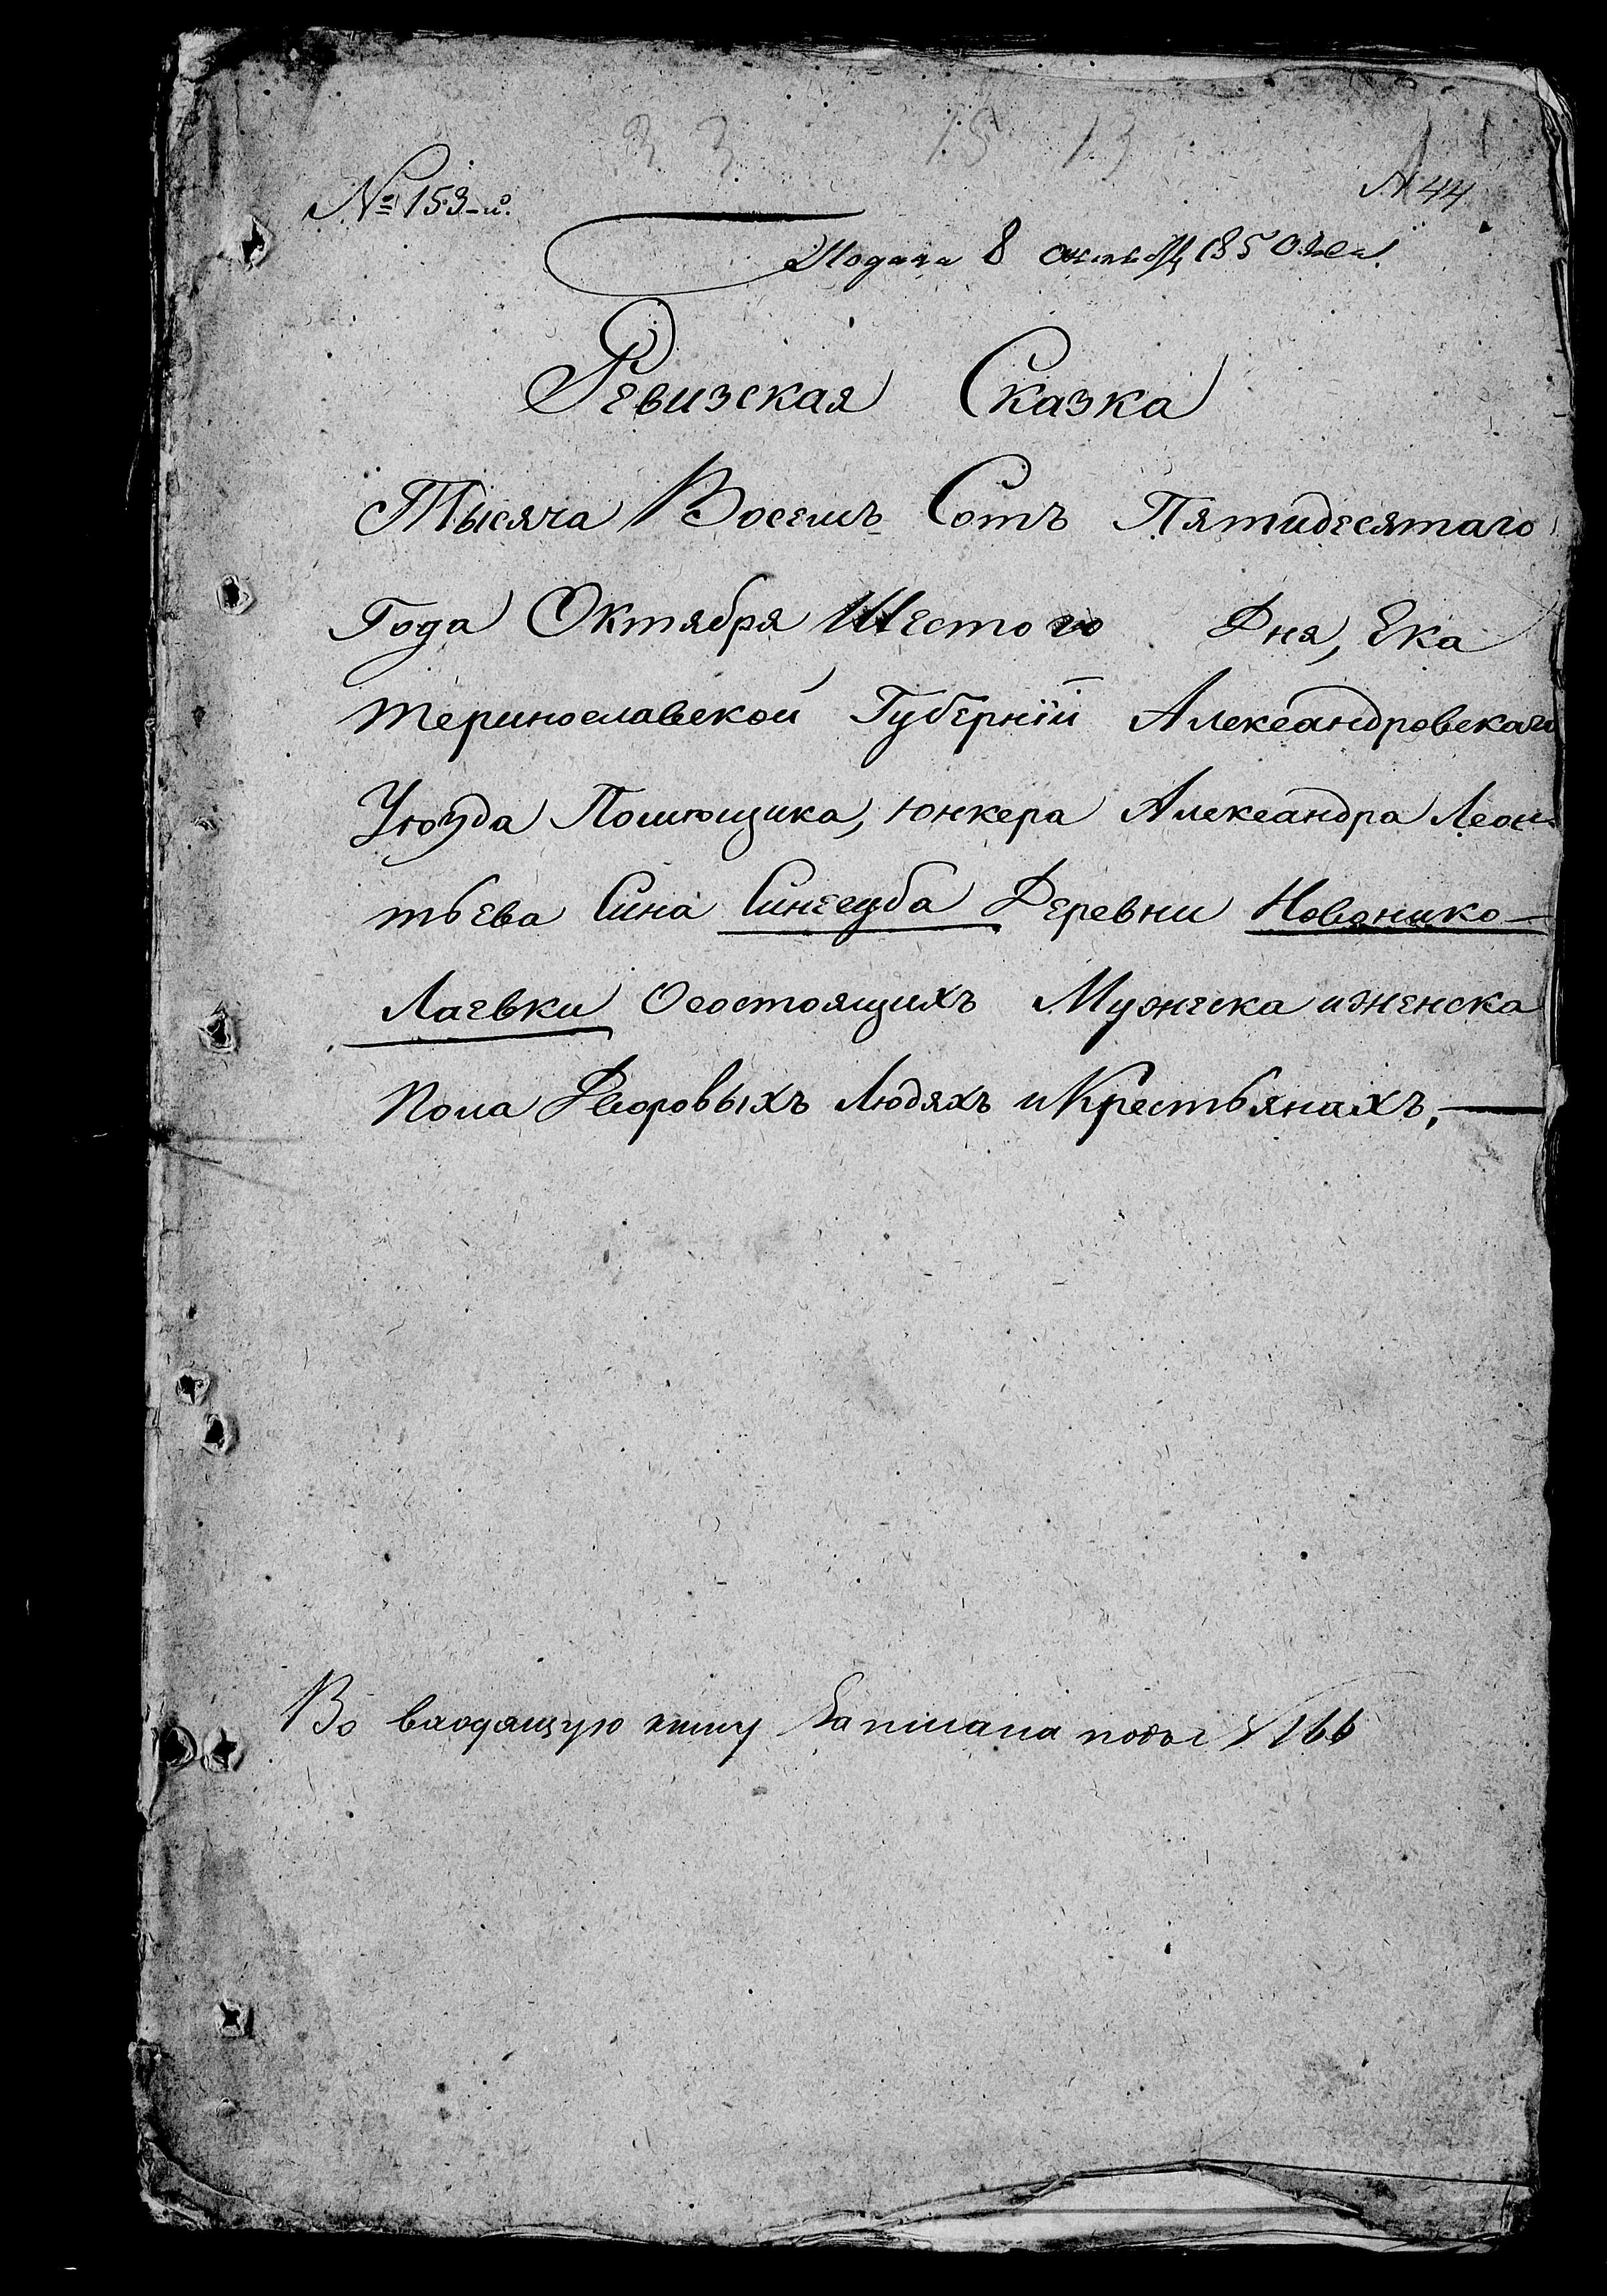 33 15 13
№ 153-й.
№ 44
Подана 8 октября 1850 года
Ревизская Сказка
Тысяча Восемъ Сотъ Пятидесятаго
Года Октября Шестого Дня, Ека
теринославской Губерніи Александровскаго
Уѣзда Помѣщика, юнкера Александра Леон-
тьева Сина Синегуба Деревни Новонико-
Лаевки О состоящихъ Мужеска и женска
Пола Дворовыхъ Людяхъ и Крестьянахъ,
Во входящую книгу Записана подъ № 166